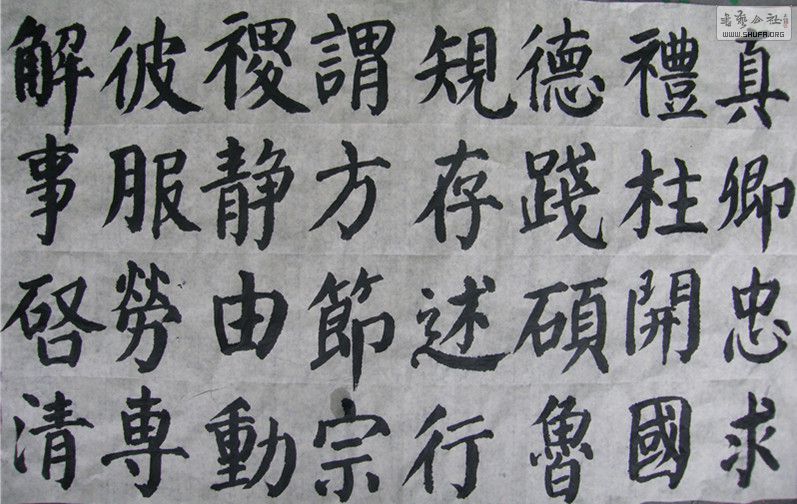 真卿忠求
禮柱開國
德踐碩魯
規存述行
謂方節宗
禝静由動
彼服勞専
解事啓清
書藝公社
WWW.SHUFA.ORG